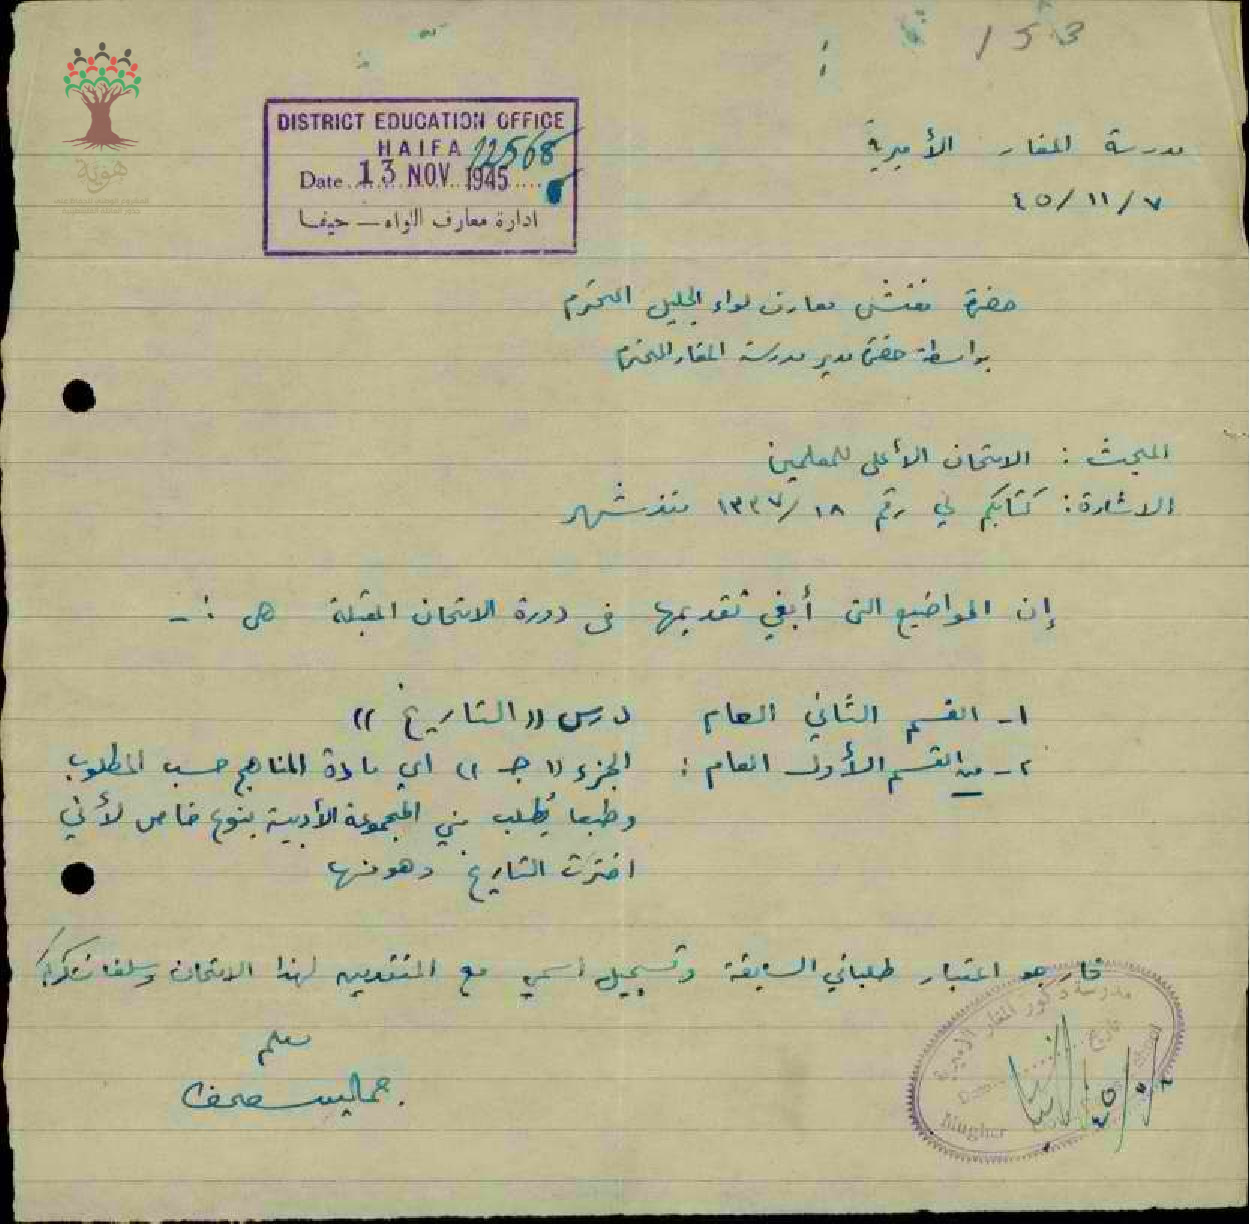 153
مدرسة المغار الأميرية
٤٥/١١/٧
DISTRICT EDUCATION OFFICE
HAIFA 12568
Date 13 NOV 1945
ادارة معارف اللواء – حيفا
هوية
حضرة مفتش معارف لواء الجليل المحترم
بواسطة حضرة مدير مدرسة المغار المحترم
المبحث : الامتحان الأعلى للمعلمين
الاشارة : كتابكم لي رقم ١٣٣٧/١٨ منذ شهر
إن المواضيع التي أبغي تقديمها في دورة الامتحان المقبلة هي :-
١- القسم الثاني العام درس "التاريخ"
٢- من القسم الأول العام : الجزء "جـ" اي مادة المناهج حسب المطلوب
وطبعا يُطلب مني المجموعة الأدبية بنوع خاص لأني
اخترت التاريخ وهو منها
فارجو اعتبار طلباتي السابقة وتسجيل اسمي مع المتقدمين لهذا الامتحان وسلفا نشكركم
معلم
مدرسة ذكور المغار الاميرية
تاريخ
Date
Mugher